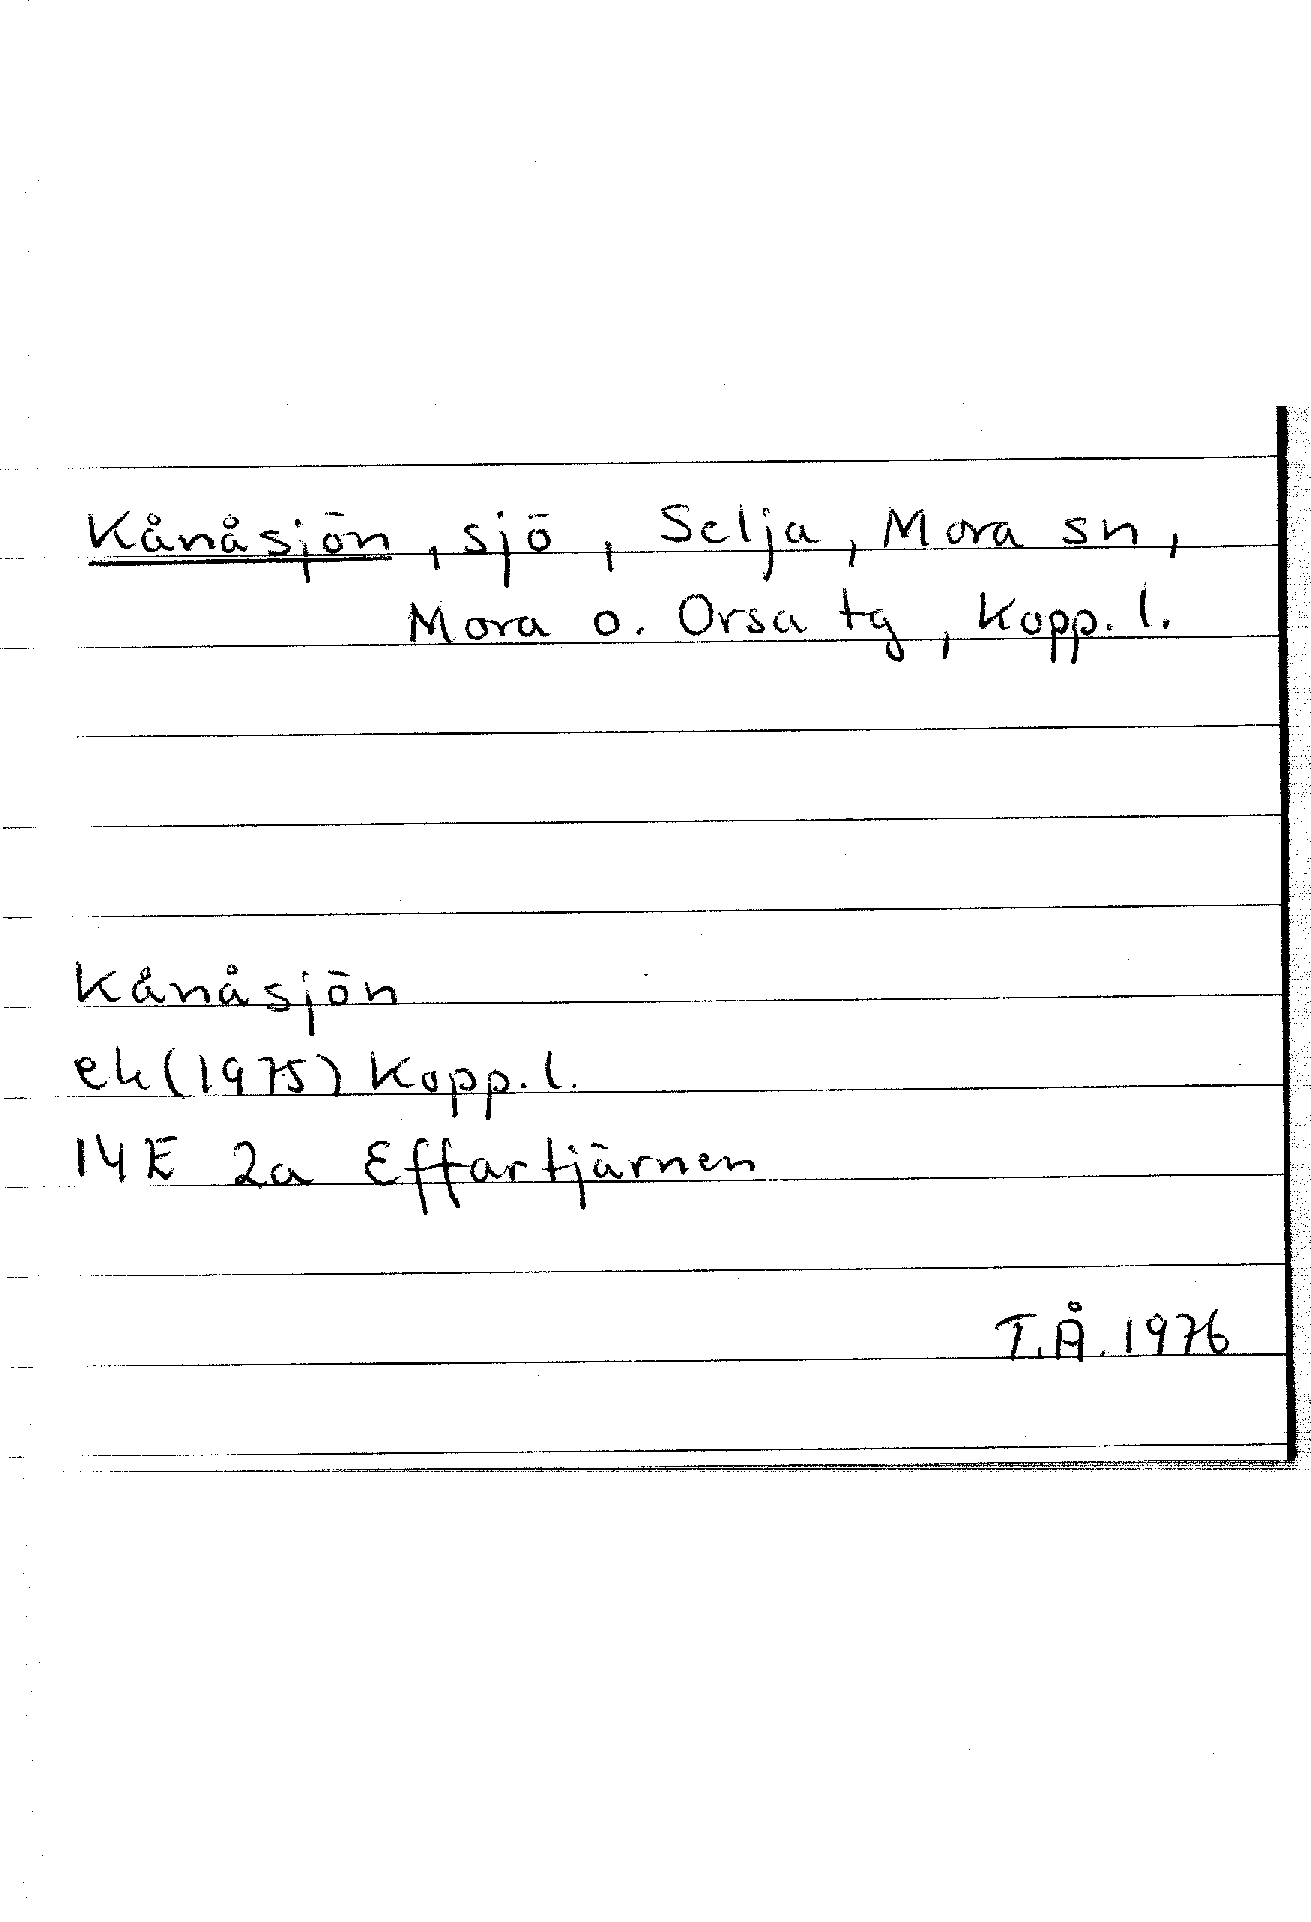 Kånåsjön, sjö, Selja, Mora sn,
Mora o. Orsa tg, Kopp. l.
Kånåsjön
ek (1975) Kopp. l.
14E 2a Effartjärnen
T.Å. 1976